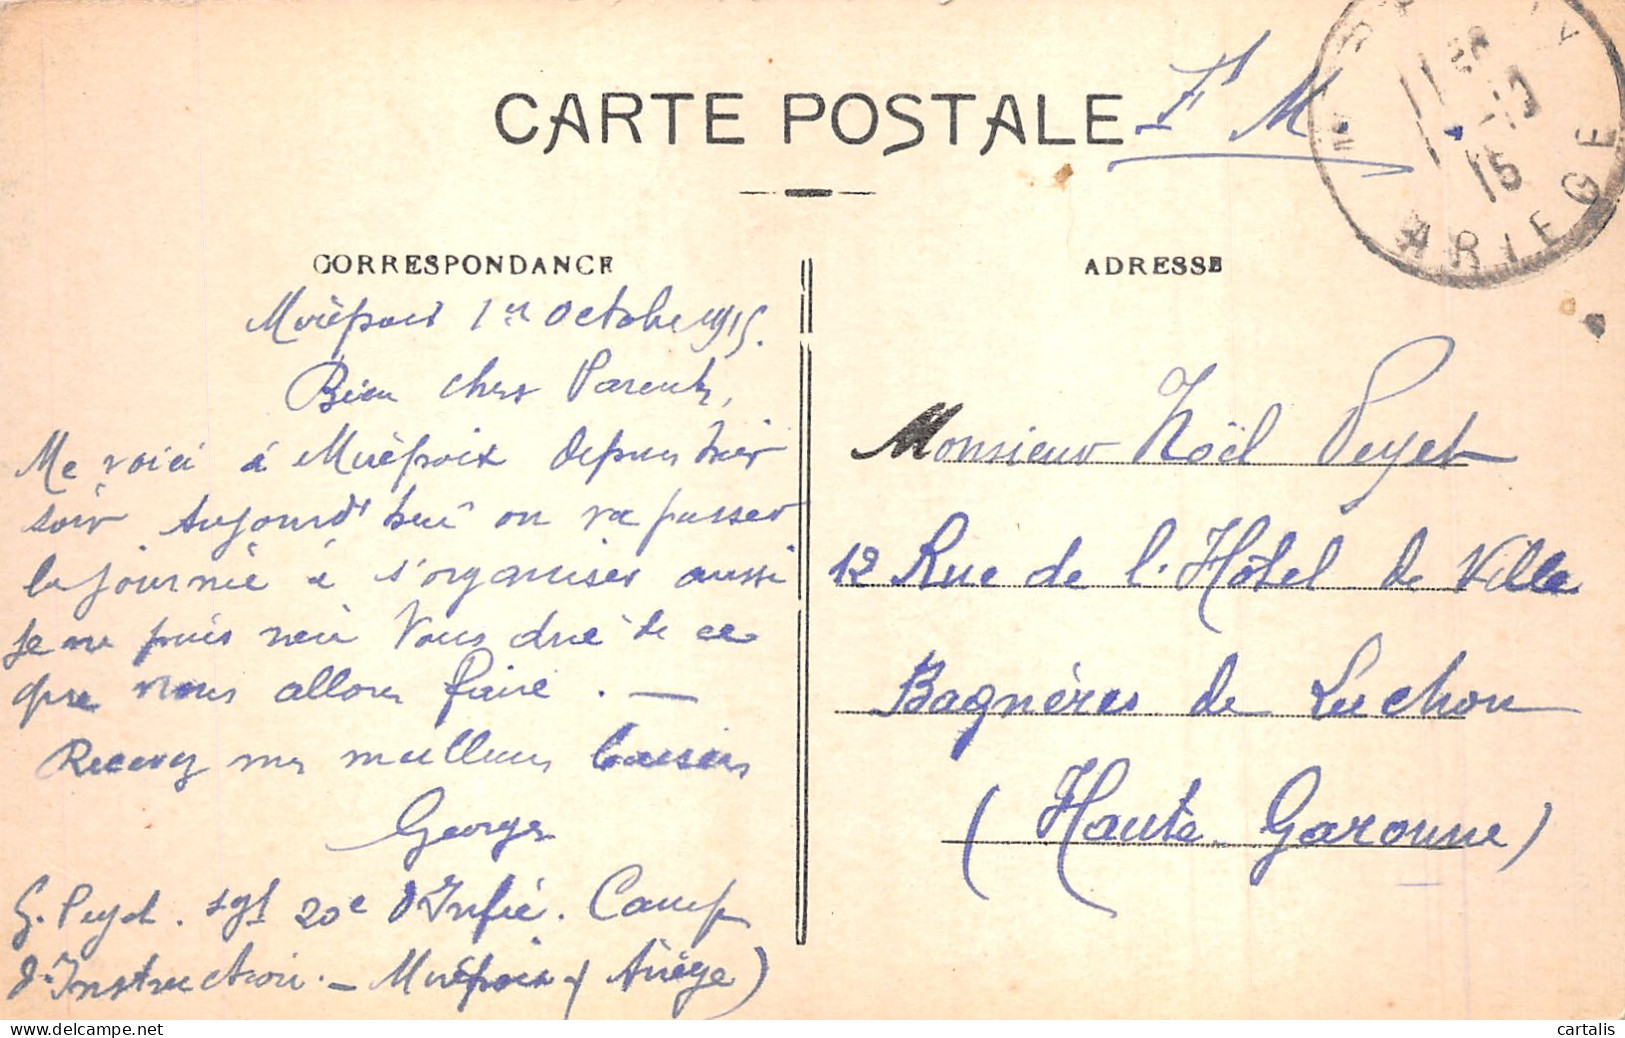 CARTE POSTALE
F M
15
ARIEGE
CORRESPONDANCE
Mirèpoix 1er Octobre 1915.
Bien chers Parents,
Me voici à Mirèpoix depuis hier
soir Aujourd'hui on va passer
la journée à s'organiser aussi
je ne puis rien vous dire de ce
que nous allons faire. —
Recevez mes meilleurs baisers
Georges
G. Peyet. sgt 20e d'Infie. Camp
d'Instruction. - Mirépoix (Ariège)
ADRESSE
Monsieur Noël Peyet
12 Rue de l'Hôtel de Ville
Bagnères de Luchon
(Haute Garonne)
cartalis